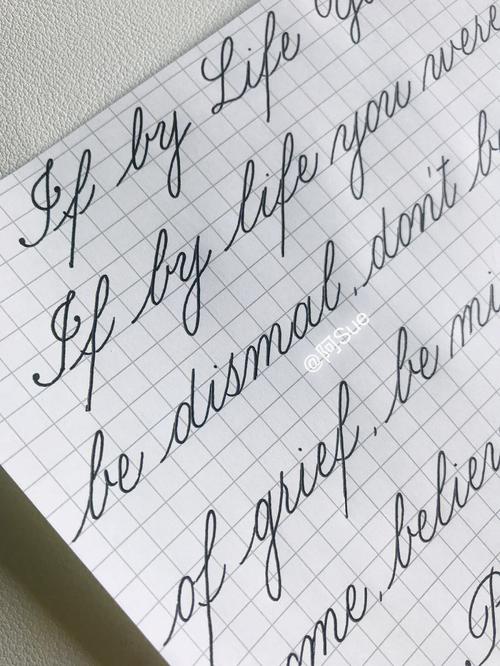 If by Life
If by life you were
be dismal, don't
be
of grief, be
me, believe
@阿Sue